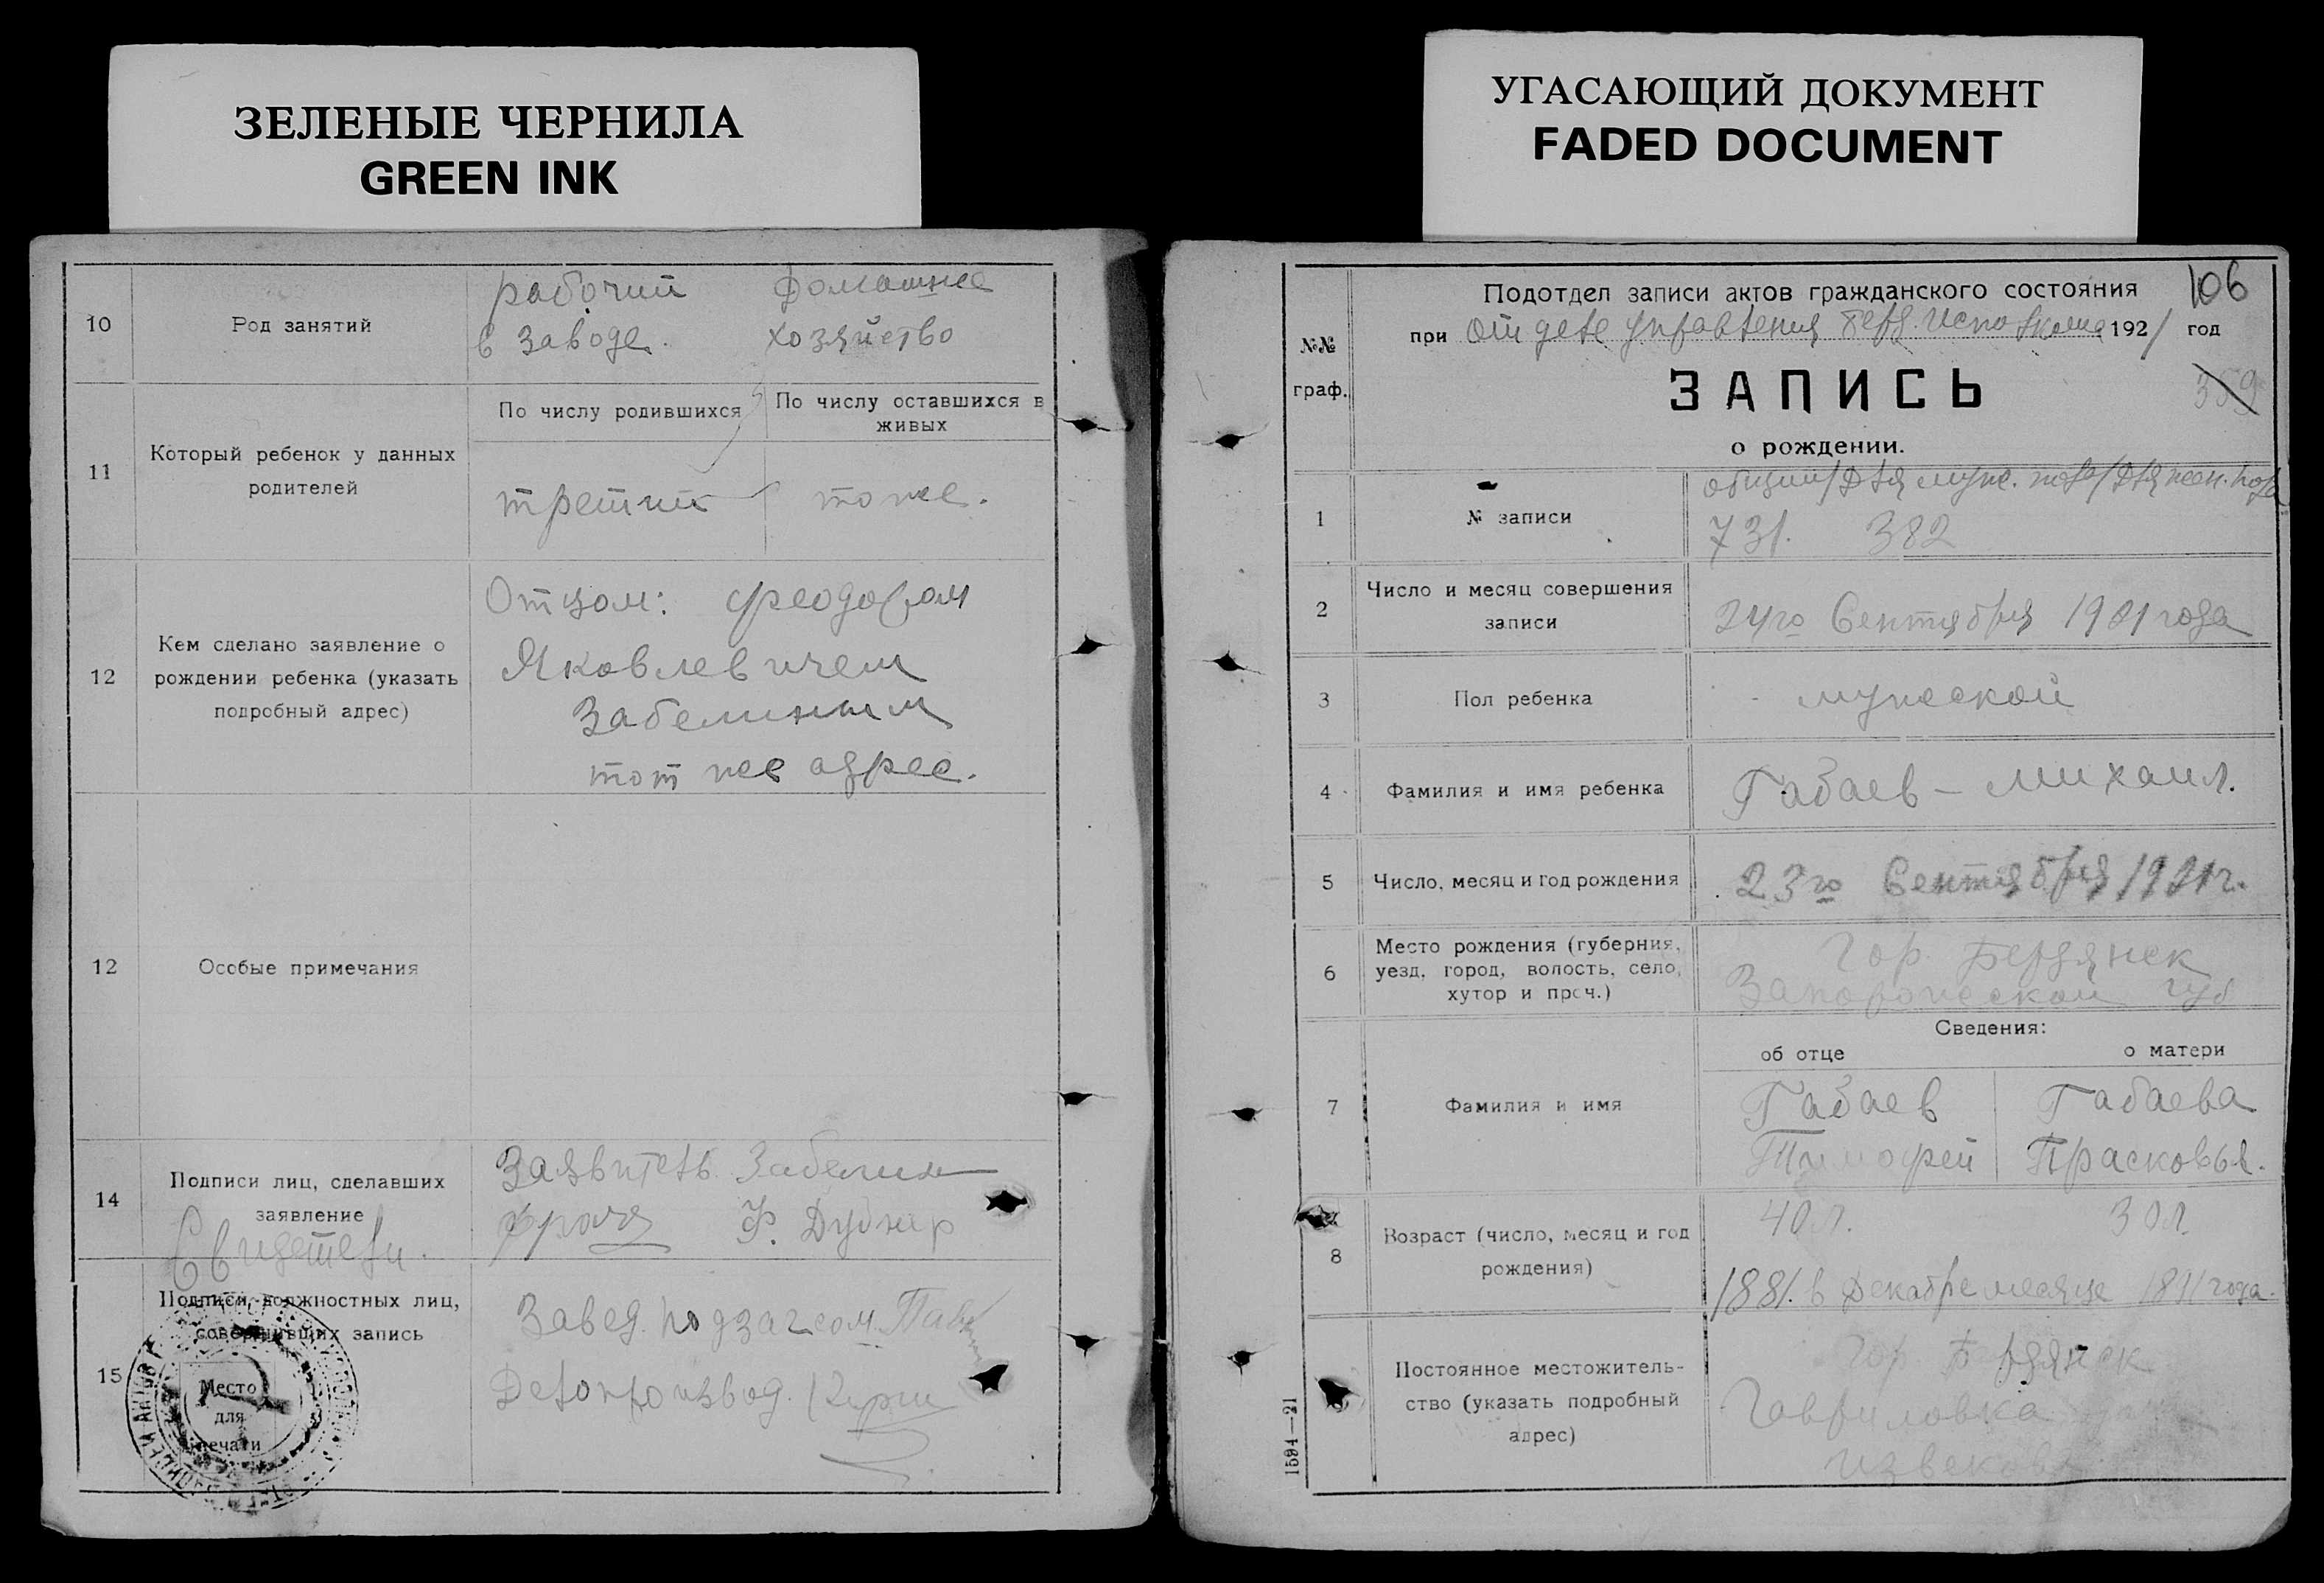 ЗЕЛЕНЫЕ ЧЕРНИЛА
GREEN INK
10
Род занятий
рабочий
в заводе.
Домашнее
хозяйство
11
Который ребенок у данных
родителей
По числу родившихся
По числу оставшихся в
живых
третий
тоже.
12
Кем сделано заявление о
рождении ребенка (указать
подробный адрес)
Отцом: Феодором
Яковлевичем
Забелиным
тот же адрес.
12
Особые примечания
14
Подписи лиц, сделавших
заявление
Свидетели.
Заявитель Забелин
Ф. Дубнер
15
Подписи должностных лиц,
совершивших запись
Место
для
печати
Завед. подзагсом
Делопроизвод.
УГАСАЮЩИЙ ДОКУМЕНТ
FADED DOCUMENT
№№
граф.
Подотдел записи актов гражданского состояния
106
при отделе управления Берд. Исполкома 1921 год
ЗАПИСЬ
359
о рождении.
1
№ записи
общий/для муже. пола/для жен. пола
731. 382
2
Число и месяц совершения
записи
24го Сентября 1921 года
3
Пол ребенка
мужеской
4
Фамилия и имя ребенка
Габаев - Михаил.
5
Число, месяц и год рождения
23го Сентября 1921 г.
6
Место рождения (губерния,
уезд, город, волость, село,
хутор и проч.)
Гор. Бердянск
Запорожеской губ
Сведения:
об отце
о матери
7
Фамилия и имя
Габаев
Тимофей
Габаева
Прасковья.
8
Возраст (число, месяц и год
рождения)
40 л.
30 л.
1881. в Декабре месяце 1891 года.
Постоянное местожитель-
ство (указать подробный
адрес)
Гор Бердянск
Гавриловка
1594—21